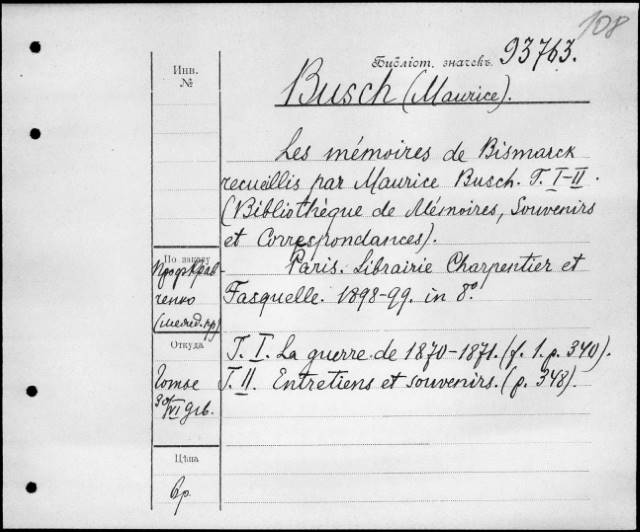 108
Библіот. значекъ. 93763.
Инв.
№
Busch (Maurice).
Les mémoires de Bismarck
recueillis par Maurice Busch. T. I–II.
(Bibliothèque de Mémoires, Souvenirs
et Correspondances).
По заказу
Проф. Крав-
ченко
Paris. Librairie Charpentier et
Fasquelle. 1898-99. in 8°.
Откуда
T. I. La guerre de 1870-1871. (f. 1. p. 340).
T. II. Entretiens et souvenirs. (p. 348).
Готье
30/VI
Цѣна